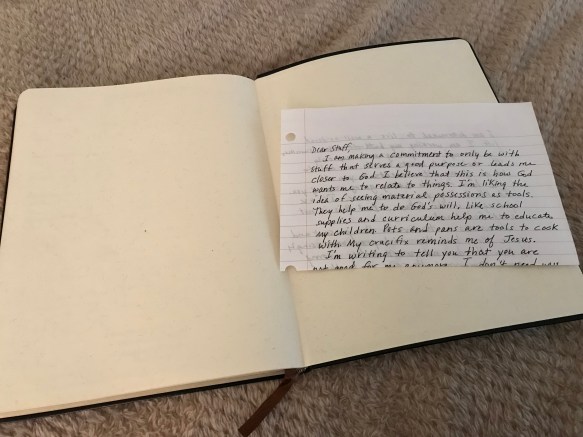 Dear Stuff,
I am making a commitment to only be with
stuff that serves a good purpose or leads me
closer to God. I believe that this is how God
wants me to relate to things. I'm liking the
idea of seeing material possessions as tools.
They help me to do God's will. Like school
supplies and curriculum help me to educate
my children. Pots and pans are tools to cook
with. My crucifix reminds me of Jesus.
I'm writing to tell you that you are
not good for me anymore. I don't need you